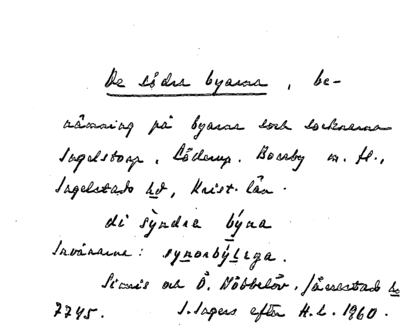 De södra byarna, be-
nämning på byarna och socknarna
Ingelstorp, Löderup, Borrby m. fl.,
Ingelstads hd, Krist. län.
di sỳndra býna
Invånarna: synnorbýlıga.
Simris och Ö. Nöbbelöv, Järrestads hd
7745. I. Ingers efter H.L. 1960.